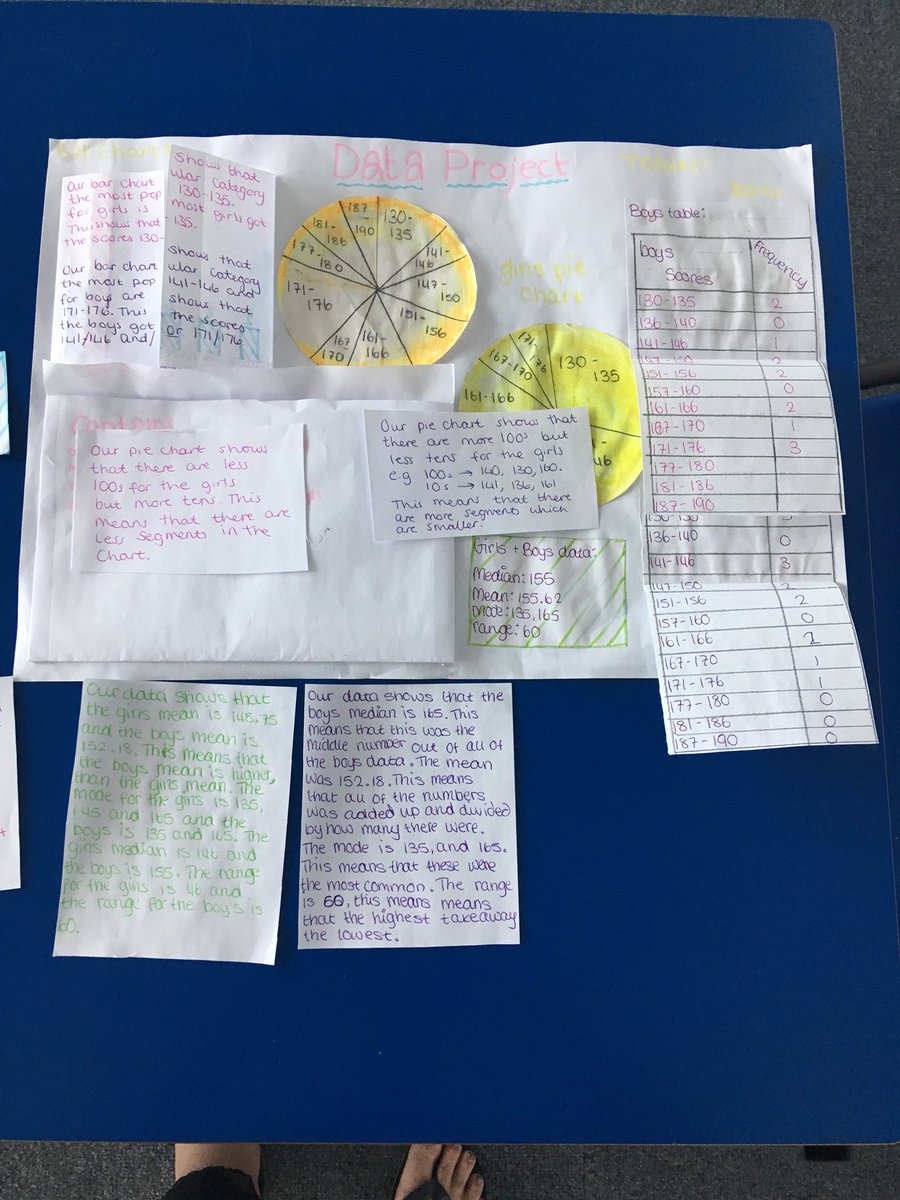 Data Project
Bar Chart
Our bar chart
the most pop
for girls is
This shows that
the scores 130-
Our bar chart
the most pop
for boys are
171-176. This
the boys got
141/146 and/
Shows that
ular category
130-135.
most girls got
135.
Shows that
ular category
141-146 and
shows that
the scores
or 171/176.
187
-
190
130-
135
141-
146
147-
150
151-
156
161-
166
167
170
171-
176
177-
180
181-
186
girls pie
chart
171-
176
167-170
161-166
130-
135
46
Boys table:
boys
Scores
Frequency
130-135 2
136-140 0
141-146 1
147-150 2
151-156 2
157-160 0
161-166 2
167-170 1
171-176 3
177-180
181-186
187-190
136-140 0
141-146 3
147-150 2
151-156 2
157-160 0
161-166
167-170 1
171-176 1
177-180 0
181-186 0
187-190 0
Contains
Our pie chart shows
that there are less
100s for the girls
but more tens. This
means that there are
less segments in the
chart.
Our pie chart shows that
there are more 100s but
less tens for the girls
e.g 100s → 140, 130, 160.
10s → 141, 136, 161
This means that there
are more segment which
are smaller.
Girls + Boys data:
Median: 155
Mean: 155.62
mode: 135, 165
range: 60
Our data shows that
the girls mean is 148.75
and the boys mean is
152.18. This means that
the boys mean is higher,
than the girls mean. The
mode for the girls is 135,
145 and 165 and the
boys is 135 and 165. The
girls median is 146 and
the boys is 155. The range
for the girls is 46 and
the range for the boy's is
60.
Our data shows that the
boys median is 165. This
means that this was the
middle number out of all of
the boys data. The mean
was 152.18. This means
that all of the numbers
was added up and divided
by how many there were.
The mode is 135, and 165.
This means that these were
the most common. The range
is 60, this means means
that the highest takeaway
the lowest.